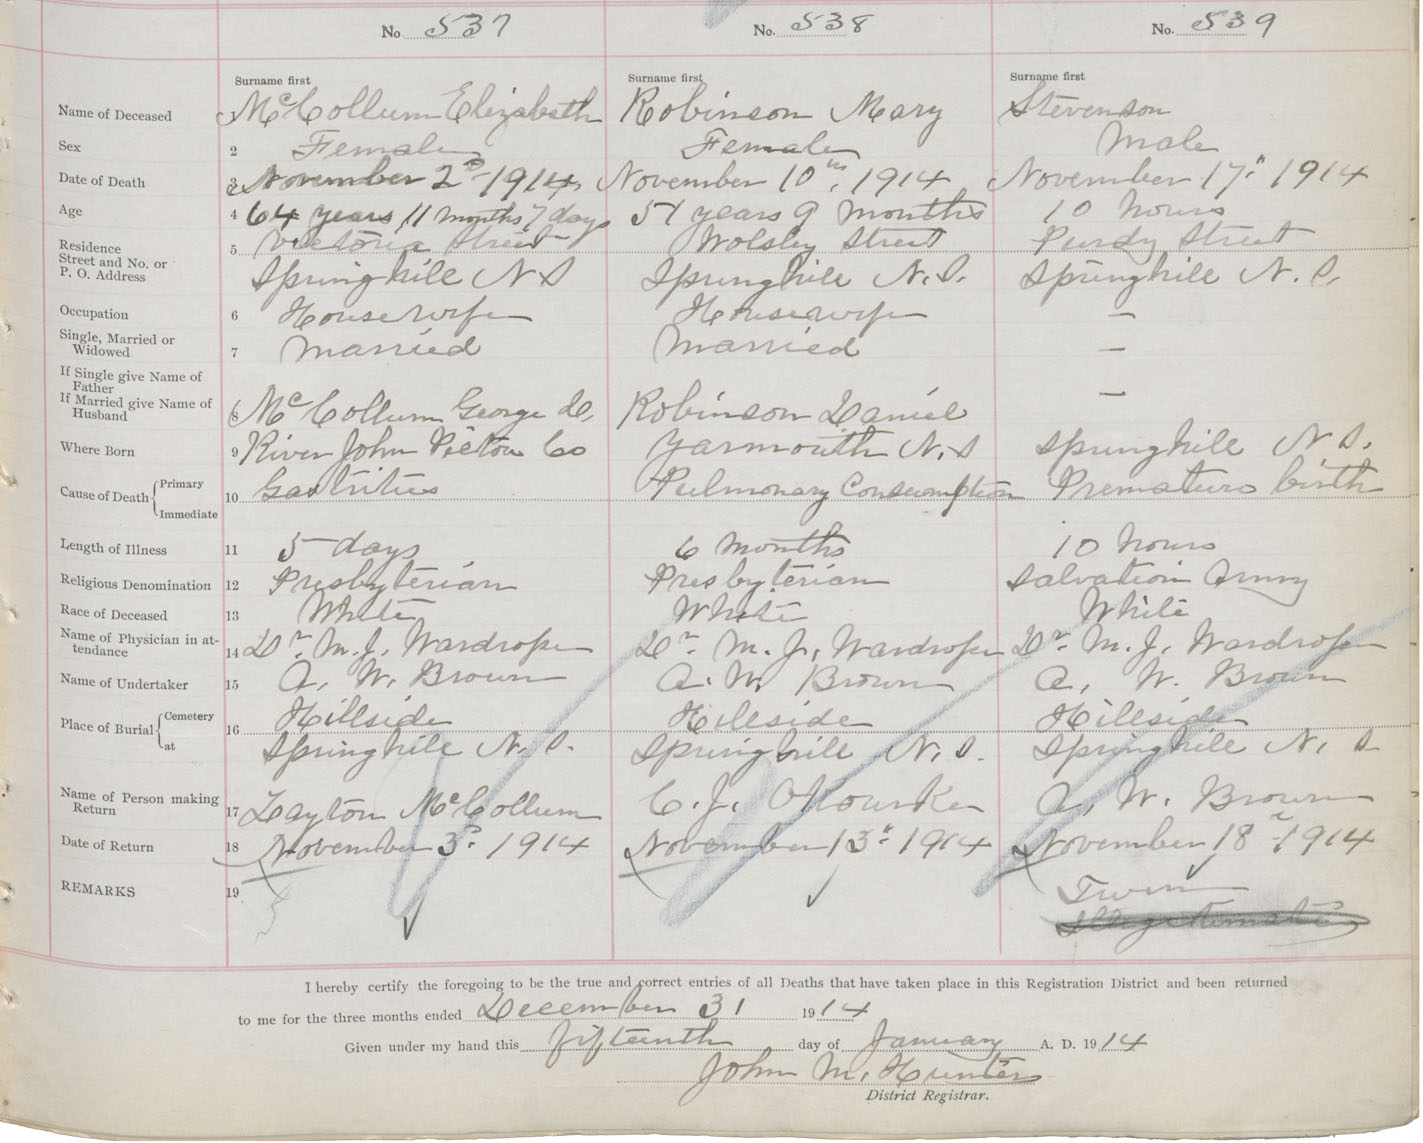 No. 537 No. 538 No. 539
Surname first Surname first Surname first
Name of Deceased 1 McCollum Elizabeth Robinson Mary Stevenson
Sex 2 Female Female Male
Date of Death 3 November 2nd 1914 November 10th, 1914 November 17th 1914
Age 4 64 years 11 months 7 days 51 years 9 months 10 hours
Residence 5 Victoria Street Wolsley Street Purdy Street
Street and No. or
P. O. Address Springhill N S Springhill N. S. Springhill N. S.
Occupation 6 Housewife Housewife —
Single, Married or
Widowed 7 Married Married —
If Single give Name of
Father
If Married give Name of —
Husband 8 McCollum George Robinson Daniel
Where Born 9 River John Pictou Co Yarmouth N. S Springhill N S.
Cause of Death { Primary
10 Gastritis Pulmonary Consumption Premature birth
Immediate
Length of Illness 11 5 days 6 months 10 hours
Religious Denomination 12 Presbyterian Presbyterian Salvation Army
Race of Deceased 13 White White White
Name of Physician in at-
tendance 14 Dr. M. J. Wardrope Dr. M. J. Wardrope Dr. M. J. Wardrope
Name of Undertaker 15 A. W. Brown A. W. Brown A. W. Brown
Place of Burial { Cemetery 16 Hillside Hillside Hillside
at Springhill N. S. Springhill N. S. Springhill N. S
Name of Person making
Return 17 Layton McCollum C. J. ORourke A. W. Brown
Date of Return 18 November 3rd 1914 November 13th 1914 November 18th 1914
REMARKS 19 Twin
Illegitimate
I hereby certify the foregoing to be the true and correct entries of all Deaths that have taken place in this Registration District and been returned
to me for the three months ended December 31 1914
Given under my hand this fifteenth day of January A. D. 1914
John M. Hunter
District Registrar.